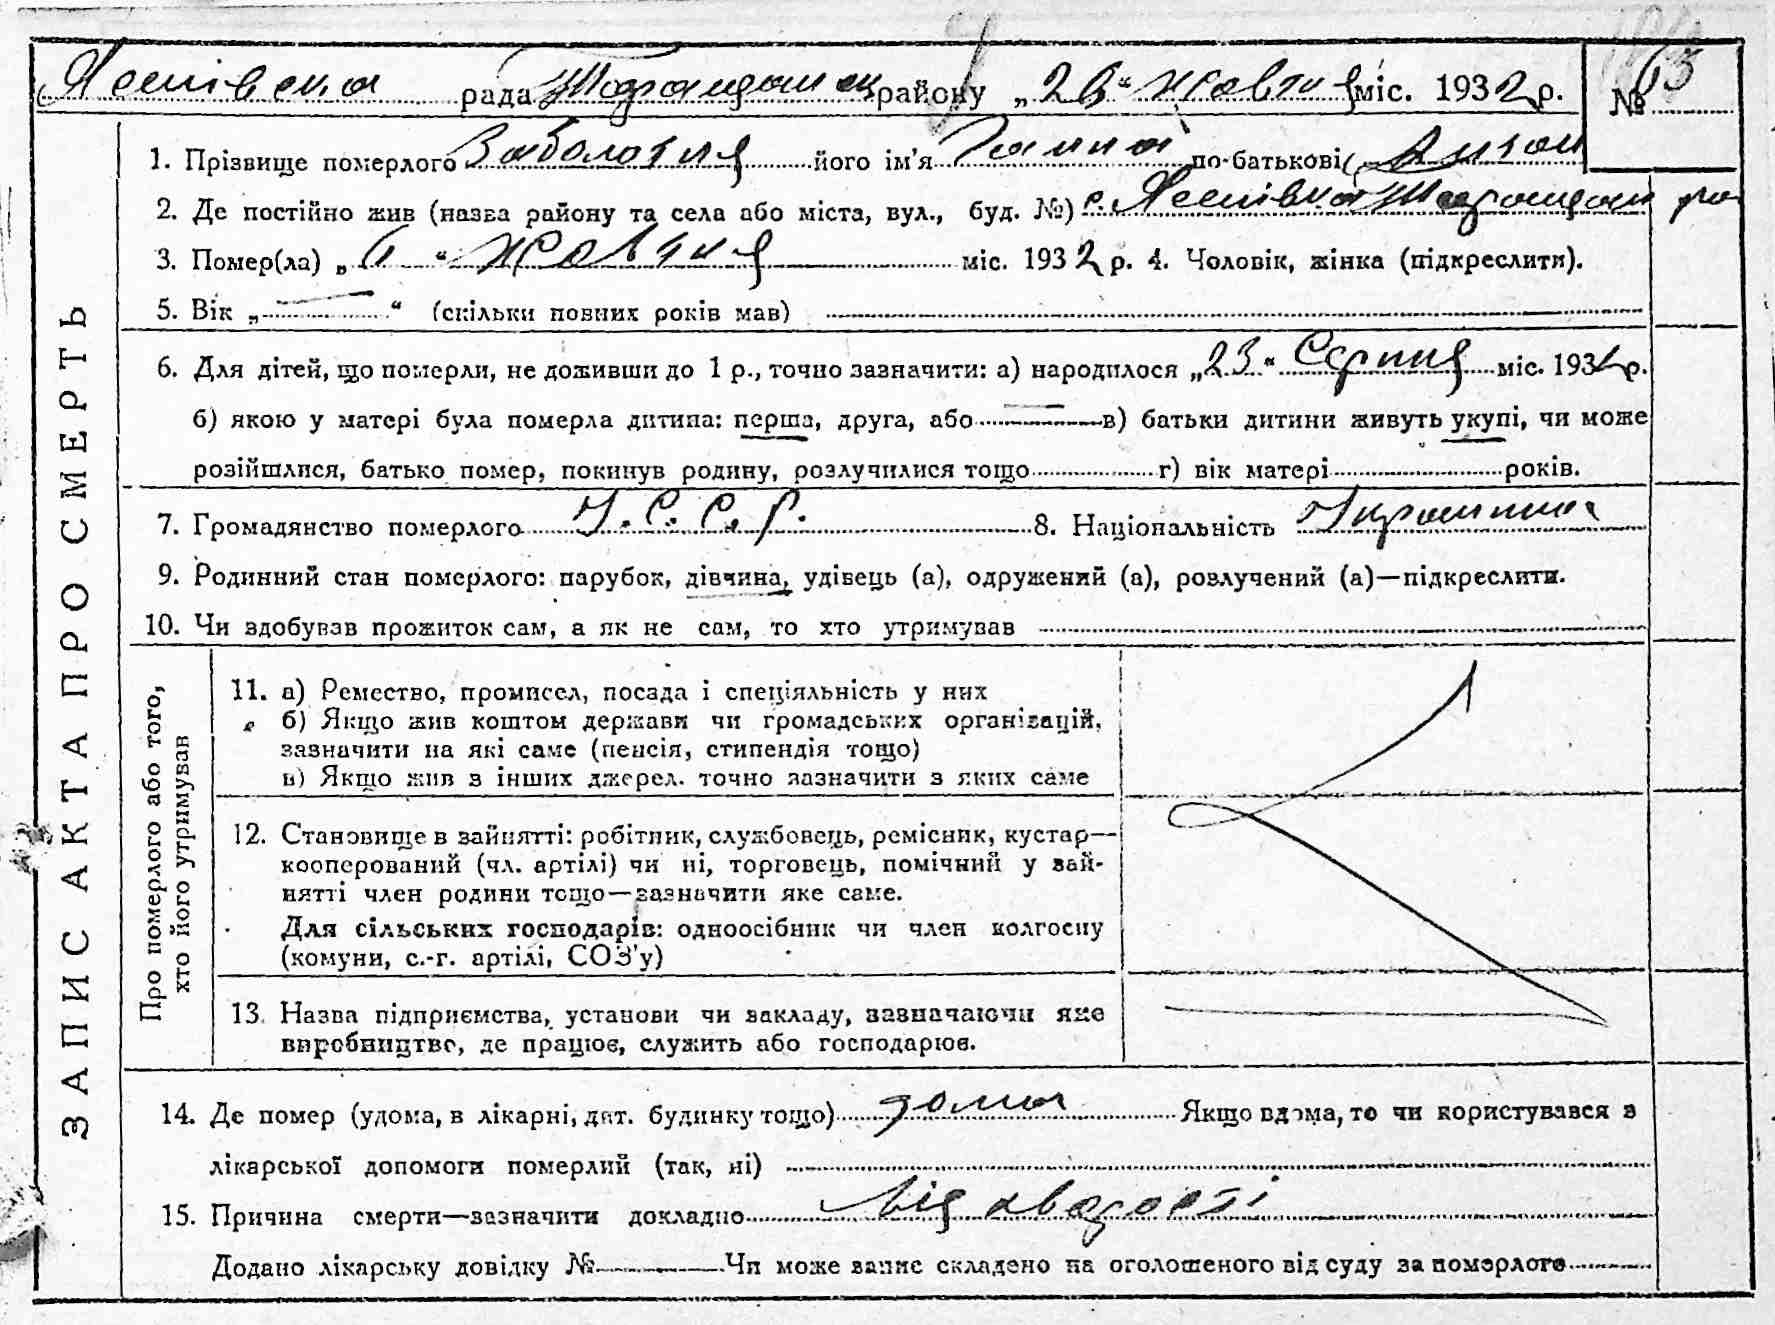 Яснівська рада Таращанськ району „26“ жовтня міс. 1932 р. № 63
1. Прізвище померлого Заболотня його ім'я Ганна по-батькові Антон
2. Де постійно жив (назва району та села або міста, вул., буд. №) с. Таращан ра
3. Помер(ла) „ “ жовтня міс. 1932 р. 4. Чоловік, жінка (підкреслити).
5. Вік „ “ (скільки повних років мав)
6. Для дітей, що померли, не доживши до 1 р., точно зазначити: а) народилося „23“ Серпня міс. 1932 р.
б) якою у матері була померла дитина: перша, друга, або в) батьки дитини живуть укупі, чи може
розійшлися, батько помер, покинув родину, розлучилися тощо г) вік матері років.
7. Громадянство померлого У.С.С.Р. 8. Національність Українка
9. Родинний стан померлого: парубок, дівчина, удівець (а), одружений (а), розлучений (а)—підкреслити.
10. Чи здобував прожиток сам, а як не сам, то хто утримував
ЗАПИС АКТА ПРО СМЕРТЬ
Про померлого або того,
хто його утримував
11. а) Ремество, промисел, посада і спеціяльність у них
б) Якщо жив коштом держави чи громадських організацій,
зазначити на які саме (пенсія, стипендія тощо)
в) Якщо жив з інших джерел. точно зазначити з яких саме
12. Становище в зайнятті: робітник, службовець, ремісник, кустар—
кооперований (чл. артілі) чи ні, торговець, помічний у зай-
нятті член родини тощо—зазначити яке саме.
Для сільських господарів: одноосібник чи член колгоспу
(комуни, с.-г. артілі, СОЗ'у)
13. Назва підприємства, установи чи закладу, зазначаючи яке
виробництво, де працює, служить або господарює.
14. Де помер (удома, в лікарні, дит. будинку тощо) дома Якщо вдома, то чи користувався з
лікарської допомоги померлий (так, ні)
15. Причина смерти—зазначити докладно Від
Додано лікарську довідку № Чи може запис складено на оголошеного від суду за померлого